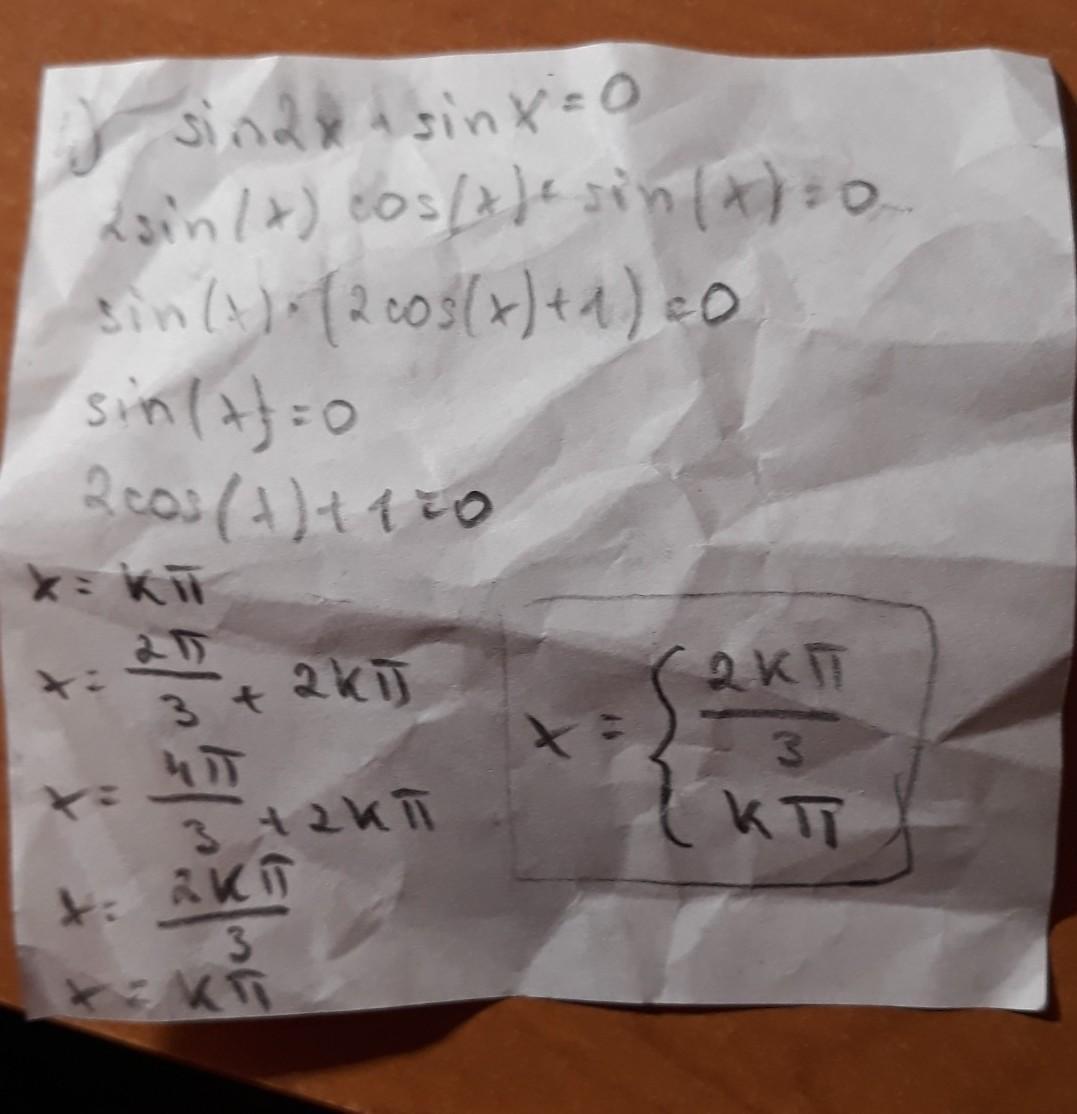 1) sin2x + sinx = 0
2sin(x) cos(x) + sin(x) = 0
sin(x) · (2cos(x)+1) = 0
sin(x) = 0
2cos(x)+1 = 0
x = kπ
x = 2π/3 + 2kπ
x = 4π/3 + 2kπ
x = 2kπ/3
x = kπ
x = { 2kπ/3
kπ